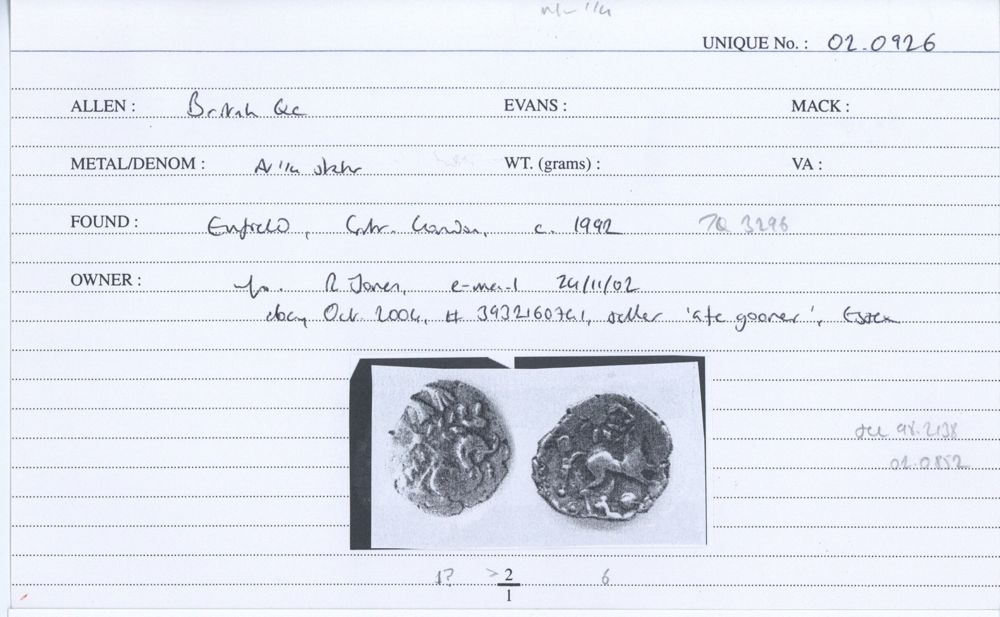 UNIQUE No. : 02.0926
ALLEN : British Qc EVANS : MACK :
METAL/DENOM : AV 1/4 stater WT. (grams) : VA :
FOUND : Enfield, Gtr. London, c. 1992 TQ 3296
OWNER : R Jones, e-mail 24/11/02
ebay Oct 2004, # 3932160741, seller 'afc gooner', Essex
see 98.2138
02.0852
1? > 2 6
1